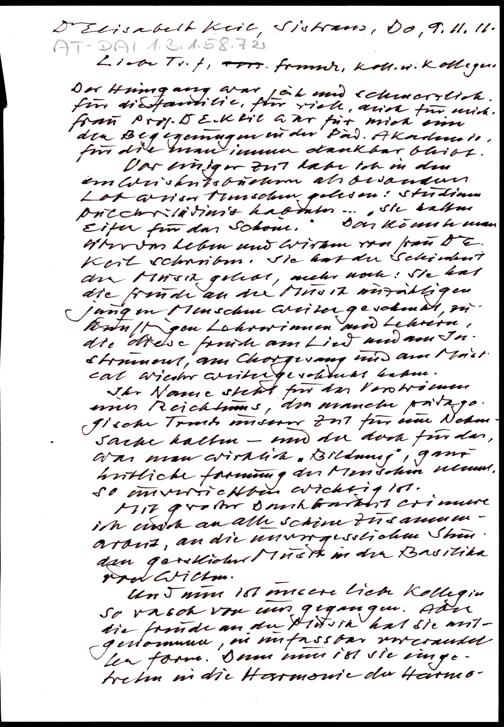 Dr Elisabeth Keil, Sistrans, Do, 9.11.11.
AT-DAI 1.2.1.58.72
Liebe Tr. f, Freunde, Koll. u. Kollegen
Der Heimgang war jäh und schmerzlich.
für die Familie, für viele, auch für mich.
Frau Prof. Dr E. Keil war für mich eine
der Begegnungen in der Päd. Akademie,
für die man immer dankbar bleibt.
Vor einiger Zeit habe ich in den
Weisheitsbüchern als besonderes
Lob weiser Menschen gelesen: Studium
pulchritudinis habentes ... "Sie hatten
Eifer für das Schöne." Das könnte man
über das Leben und Wirken von Frau Dr E.
Keil schreiben. Sie hat die Schönheit
der Musik gelebt, mehr noch: Sie hat
die Freude an der Musik unzähligen
jungen Menschen weitergeschenkt, zu-
künftigen Lehrerinnen und Lehrern,
die diese Freude am Lied und am In-
strument, am Chorgesang und am Musi-
cal wieder weitergeschenkt haben.
Ihr Name steht für das Verströmen
eines Reichtums, den manche pädago-
gische Trends unserer Zeit für eine Neben-
sache halten – und der doch für das,
was man wirklich "Bildung", ganz-
heitliche Formung des Menschen nennt,
so unverzichtbar wichtig ist.
Mit großer Dankbarkeit erinnere
ich mich an alle schöne Zusammen-
arbeit, an die unvergesslichen Stun-
den geistlicher Musik in der Basilika
von Wilten.
Und nun ist unsere liebe Kollegin
so rasch von uns gegangen. Aber
die Freude an der Musik hat sie mit-
genommen, in unfassbar verwandel-
ter Form. Denn nun ist sie einge-
treten in die Harmonie der Harmo-